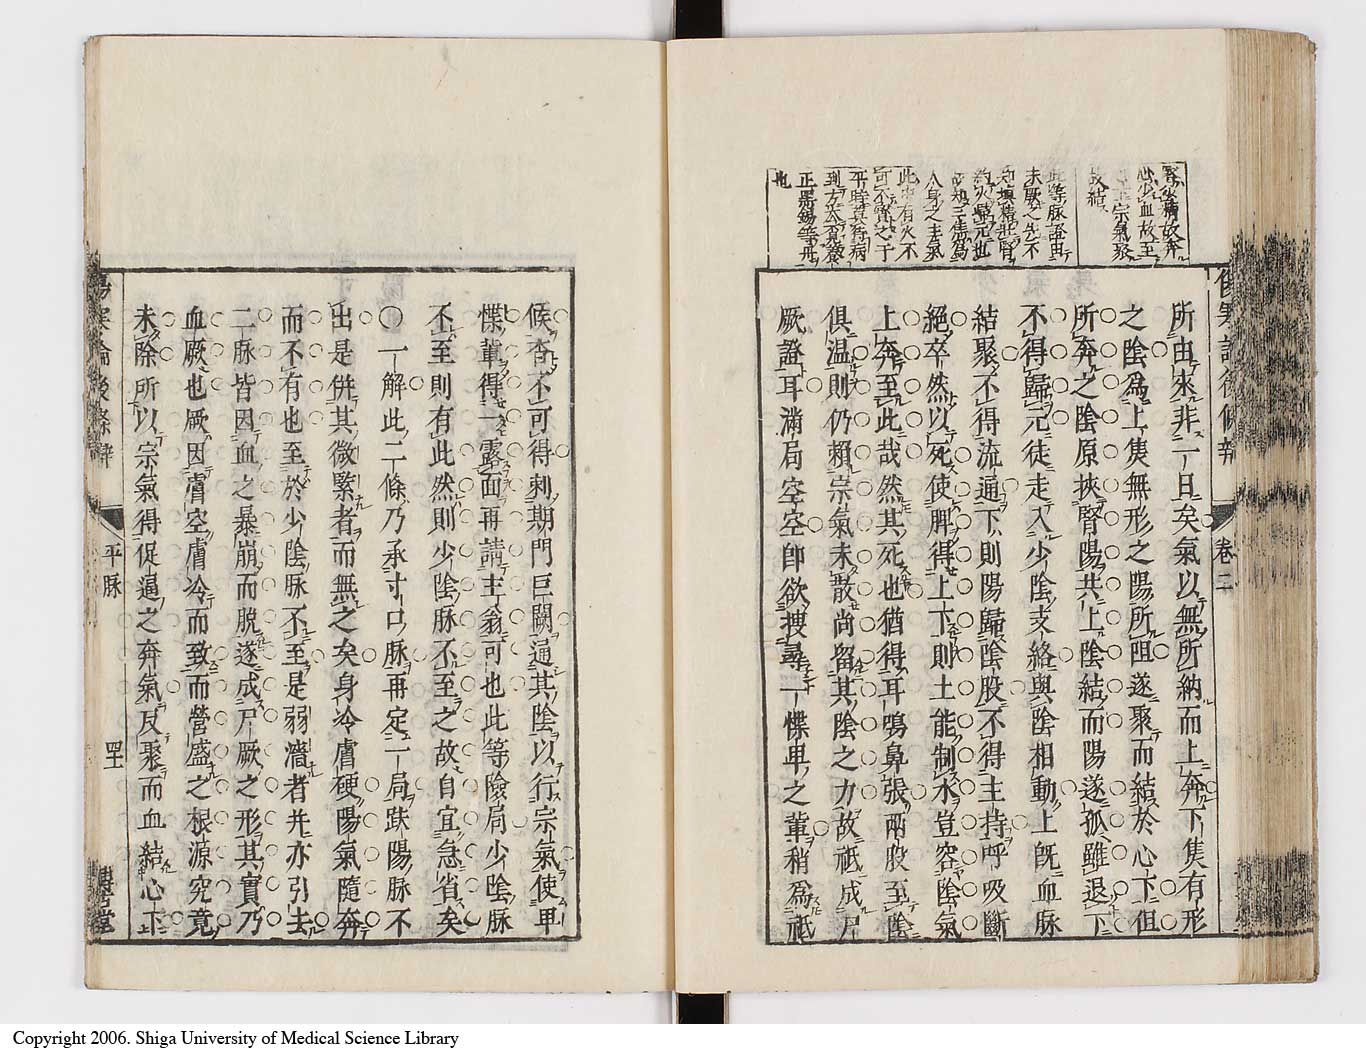 腎後精故奔
心少血故至
宗氣聚
故結
此等脉證由
未厥之先不
人身之主氣
此中有火不
可不寶之于
平時其待病
正陽錫等丹
也
傷寒論後條辨
卷二
所由來非一日矣氣以無所納而上奔下集有形
之陰爲上集無形之陽所阻遂聚而結於心下但
所奔之陰原挾腎陽共上陰結而陽遂孤雖退下
不得歸元徒走入少陰支絡與陰相動上旣血脉
結聚不得流通下則陽歸陰股不得主持呼吸斷
絕卒然以死使脾得上下則土能制水豈容陰氣
上奔至此哉然其死也猶得耳鳴鼻張兩股至陰
俱温則仍賴宗氣未散尚留其陰之力故祗成尸
厥證耳滿局空空卽欲搜尋一慄卑之輩稍爲祗
候杳不可得刺期門巨闕通其陰以行宗氣使卑
慄輩得一露面再請主翁可也此等險局少陰脉
不至則有此然則少陰脉不至之故自宜急省矣
〇一解此二條乃承寸口脉再定一局趺陽脉不
出是併其微緊者而無之矣身冷膚硬陽氣隨奔
而不有也至於少陰脉不至是弱濇者并亦引去
二脉皆因血之暴崩而脱遂成尸厥之形其實乃
血厥也厥因膚空膚冷而致而營盛之根源究竟
未除所以宗氣得促逼之奔氣反聚而血結心下
傷寒論後條辨
平脉
博古堂